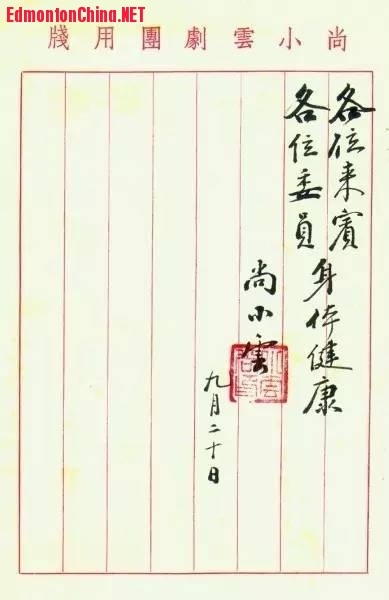 EdmontonChina.NET
尚小雲劇團用牋
各位来賓
各位委員
身体健康
尚小雲
九月二十日